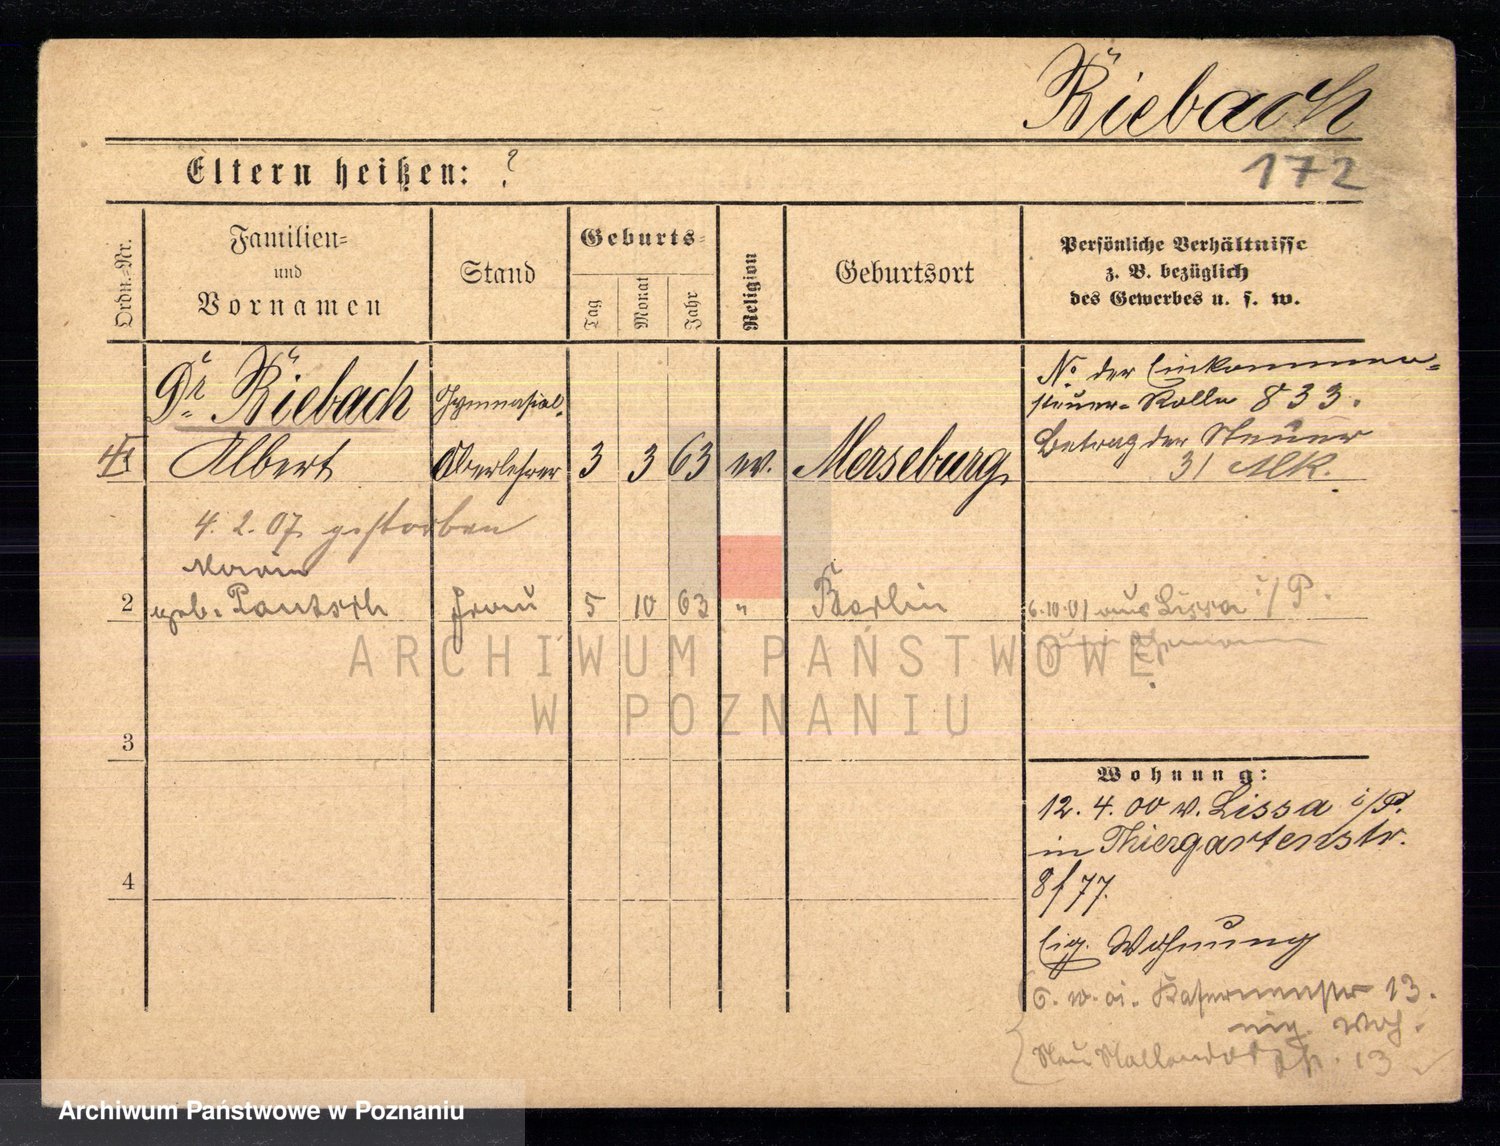 Riebach
172
Eltern heißen: ?
Ordn.-Nr.
Familien-
und
Vornamen
Stand
Geburts-
Tag
Monat
Jahr
Religion
Geburtsort
Persönliche Verhältnisse
z. B. bezüglich
des Gewerbes u. s. w.
Dr Riebach
Albert
Gymnasial-
Oberlehrer
3 3 63 ev. Merseburg
No der Einkommen-
steuer-Rolle 833.
Betrag der Steuer
31 Mk.
4. 2. 07 gestorben
2
geb. Frau 5 10 63 " Berlin
6.10.01 aus Lissa i/P.
zum Ehemann
3
4
Wohnung:
12. 4. 00 v. Lissa i/P.
in Thiergartenstr.
8 f 77.
Eig. Wohnung
13.
eig. Woh.
13
ARCHIWUM PAŃSTWOWE
W POZNANIU
Archiwum Państwowe w Poznaniu